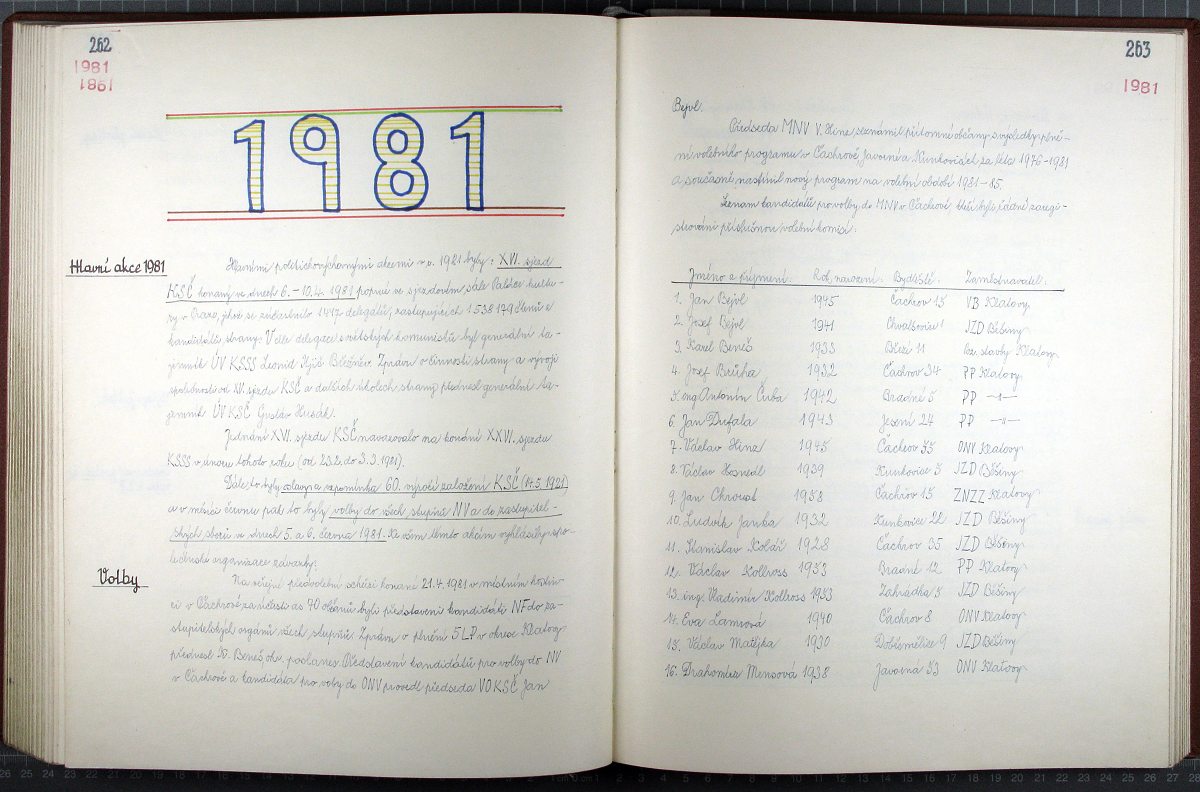 262
1981
1981
1981
Hlavní akce 1981
Hlavními politickovýchovnými akcemi v r. 1981 byly: XVI. sjezd
KSČ konaný ve dnech 6. – 10.4. 1981 poprvé ve sjezdovém sále Paláce kultu-
ry v Praze, jehož se zúčastnilo 1417 delegátů, zastupujících 1 538 179 členů a
kandidátů strany. V čele delegace sovětských komunistů byl generální ta-
jemník ÚV KSSS Leonid Iljič Brežněv. Zprávu o činnosti strany a vývoji
společnosti od XV. sjezdu KSČ a dalších úkolech strany přednesl generální ta-
jemník ÚV KSČ Gustáv Husák.
Jednání XVI. sjezdu KSČ navazovalo na konání XXVI. sjezdu
KSSS v únoru tohoto roku (od 23.2. do 3.3. 1981).
Dále to byly oslavy a vzpomínka 60. výročí založení KSČ (14.5. 1921)
a v měsíci červnu pak to byly volby do všech stupňů NV a do zastupitel-
ských sborů ve dnech 5. a 6. června 1981. Ke všem těmto akcím vyhlásily spo-
lečenské organizace závazky.
Volby
Na veřejné předvolební schůzi konané 21.4. 1981 v místním hostin-
ci v Čachrově za účasti as 70 občanů byli představeni kandidáti NF do za-
stupitelských orgánů všech stupňů. Zprávu o plnění 5LP v okrese Klatovy
přednesl Beneš, posl­anec. Představení kandidátů pro volby do NV
v Čachrově a kandidáta pro volby do ONV provedl předseda VO KSČ Jan
263
1981
Bejvl.
Předseda MNV V. Hinz seznámil přítomné občany s výsledky plně-
ní volebního programu v Čachrově Javorné a Kunkovicích za léta 1976–1981
a současně nastínil nový program na volební období 1981–85.
Seznam kandidátů pro volby do MNV v Čachrově kteří byli řádně zaregi-
strováni příslušnou volební komisí:
Jméno a příjmení: Rok narození: Bydliště: Zaměstnavatel:
1. Jan Bejvl 1945 Čachrov 15 VB Klatovy
2. Josef Bejvl 1941 Chvalšovice 1 JZD Běšiny
3. Karel Beneš 1933 Březí 11 Oz. stavby Klatovy
4. Josef Brůha 1932 Čachrov 34 PP Klatovy
5. ing Antonín Čuba 1942 Bradné 5 PP —"—
6. Jan Dufala 1943 Jesení 24 PP —"—
7. Václav Hinz 1945 Čachrov 33 ONV Klatovy
8. Václav Hosnedl 1939 Kunkovice 3 JZD Běšiny
9. Jan Chroust 1958 Čachrov 15 ZNZZ Klatovy
10. Ludvík Janka 1932 Kunkovice 22 JZD Běšiny
11. Stanislav Kolář 1928 Čachrov 35 JZD Běšiny
12. Václav Kollross 1953 Bradné 12 PP Klatovy
13. ing. Vladimír Kollross 1953 Zahrádka 5 JZD Běšiny
14. Eva Lamrová 1940 Čachrov 8 ONV Klatovy
15. Václav Matějka 1930 Dobřemělice 9 JZD Běšiny
16. Drahomíra Mensová 1938 Javorná 33 ONV Klatovy